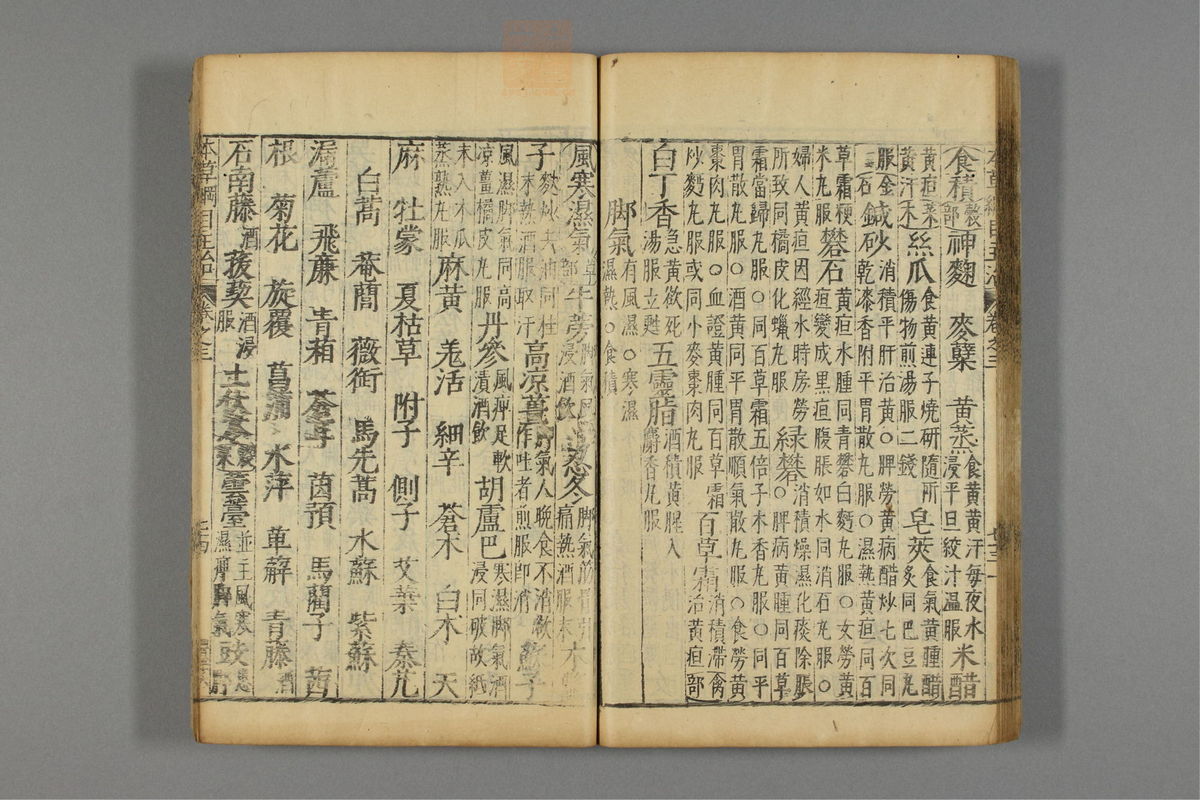 食積穀部神麴 麥櫱 黃蒸食黃黃汗每夜水浸平旦絞汁溫服米醋
黃疸黃汗絲瓜食黃連子燒研隨所傷物煎湯服二錢皂莢食氣黃腫醋炙同巴豆丸
服金石鍼砂消積平肝治黃○脾勞黃病醋炒七次同乾漆香附平胃散丸服○濕熱黃疸同百
草霜粳米丸服礬石黃疸水腫同青礬白麪丸服○女勞黃疸變成黑疸腹脹如水同消石丸服○
婦人黃疸因經水時房勞所致同橘皮化蠟丸服綠礬消積燥濕化痰除脹○脾病黃腫同百草
霜當歸丸服○同百草霜五倍子木香丸服○同平
胃散丸服○酒黃同平胃散順氣散丸服○食勞黃
棗肉丸服○血證黃腫同百草霜
炒麪丸服或同小麥棗肉丸服百草霜消積滯禽治黃疸部
白丁香急黃欲死湯服立甦五靈脂酒積黃腥入麝香丸服
脚氣有風濕○寒濕濕熱○食積
風寒濕氣草部牛蒡脚氣風浸酒飲忍冬脚氣筋骨引痛熱酒服末木
子麩炒共末熱酒服取汗高凉薑脚氣人晚食不消欲作吐者煎服卽消蘇子
風濕脚氣同高凉薑橘皮丸服丹參風痺足軟漬酒飲胡蘆巴寒濕脚氣酒浸同破故紙
末入木瓜蒸熟丸服麻黃 羗活 細辛 蒼朮 白朮 天
麻 牡蒙 夏枯草 附子 側子 艾葉 秦艽
白蒿 菴䕡 薇銜 馬先蒿 水蘇 紫蘇
漏蘆 飛廉 青葙 蒼耳 茵蕷 馬藺子 茜
根 菊花 旋覆 菖蒲 水萍 萆薢 青藤酒
石南藤酒 菝葜酒浸服 土茯苓
本草綱目主治 卷之三